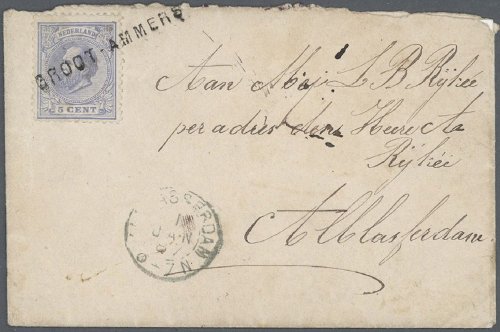 NEDERLAND
GROOT-AMMERS
5 CENT
Aan Mej. L B Rijkée
per adres den Heere A
Rijkée
Alblasserdam